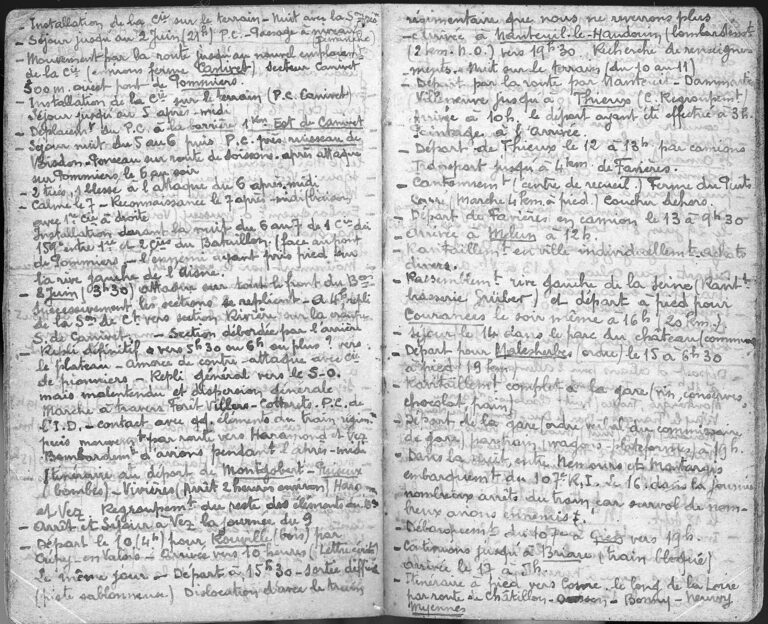 - Installation de la Cie sur le terrain - Nuit avec la 5me
- Séjour jusqu'au 2 Juin (21h) P.C. - Passage à niveau
- Mouvement par la route jusqu'au nouvel emplacemt
de la Cie (environs ferme Canivet) secteur Canivet
500 m. ouest pont de Pommiers.
- Installation de la Cie sur le terrain (P.C. Canivet)
Séjour jusqu'au 5 après-midi
- Déplacemt du P.C. à la barrière 1 Km Est de Canivet
- Séjour nuit du 5 au 6 puis P.C. près ruisseau de
sur route de Soissons. après attaque
sur Pommiers le 6 au soir
- 2 tués, 1 blessé à l'attaque du 6 après-midi
- Calme le 7 - Reconnaissance le 7 après-midi (liaison
avec 1re Cie à droite
Installation durant la nuit du 6 au 7 de 1 Cie du
159e entre 1re et 2 Cies du Bataillon (face au pont
de Pommiers - l'ennemi ayant pris pied sur
la rive gauche de l'Aisne.
- 8 Juin (3h30) attaque sur tout le front du Bon
successivement les sections se replient - A 4h repli
de la Son de Ct vers section Rivière sur la
S. de Canivet - Section débordée par l'arrière
- Repli définitif vers 5h30 ou 6h ou plus ? vers
le plateau - Amorce de contre-attaque avec Cie
de pionniers - Repli général vers le S-O.
mais malentendu et dispersion générale
Marche à travers Forêt Villers-Cotterets. P.C. de
l'I.D. - contact avec qq. éléments du train régim.
puis mouvemt par route vers Haramond et Vez
Bombardemt d'avions pendant l'après-midi
Itinéraire au départ de Montgobert - Puiseux
(bombes) - Vivières (Arrêt 2 heures environ) Hara-
et Vez Regroupement du reste des éléments du Bon
- Arrêt et Séjour à Vez la journée du 9
- Départ le 10 (4h) pour (bois) par
Crépy-en-Valois - Arrivée vers 10 heures (
Le même jour - Départ à 15h30 - sortie diffic
(piste sablonneuse) Dislocation d'avec le train
régimentaire que nous ne reverrons plus
- Arrivée à Nanteuil-le-Haudouin (bombardemt)
(2 km. N.O.) vers 19h30. Recherche de renseigne-
ments - Nuit sur le terrain (du 10 au 11)
- Départ par la route par Nanteuil - Dammartin
Villeneuve jusqu'à Thieux (C. Regroupemt)
Arrivée à 10h. le départ ayant été effectué à 3h.
Pointage à l'arrivée.
- Départ de Thieux le 12 à 13h par camions
Transport jusqu'à 4 km. de Favières.
- Cantonnemt (centre de recueil) Ferme du Puits
Carré (Marche 4 km. à pied) Coucher dehors.
- Départ de Favières en camion le 13 à 9h30
- Arrivée à Melun à 12h.
- Ravitaillemt en ville individuellemt - Achats
divers.
- Rassemblemt rive gauche de la Seine (Ravitt
brasserie Grüber) et départ à pied pour
Courances le soir même à 16h (20 km.)
- Séjour le 14 dans le parc du château (communs
- Départ pour Malesherbes (ordre) le 15 à 6h30
à pied 19 km)
- Ravitaillemt complet à la gare (vin, conserves
chocolat, pain)
- Départ de la gare (ordre verbal du commissaire
de gare) par train (wagons-plateformes) à 19h.
- Dans la nuit, entre Nemours et Montargis
embarquemt du 107e R.I. Le 16 dans la journée
nombreux arrêts du train car survol de nom-
breux avions ennemis.
- Débarquemt du 107e à Gien vers 19h.
- Continuons jusqu'à Briare (train bloqué)
arrivée le 17 à 5h.
- Itinéraire à pied vers Cosne. le long de la Loire
par route de Châtillon - - Bonny - Neuvy
Myennes